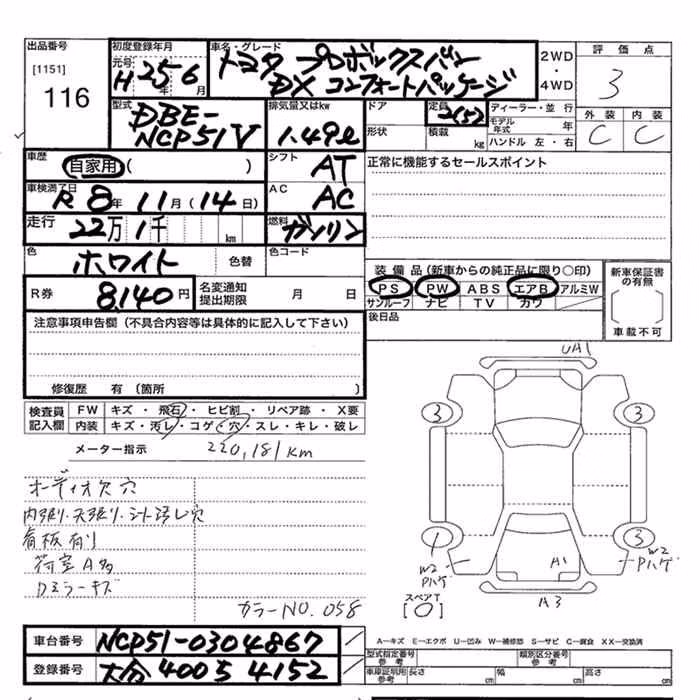 出品番号
[1151]
116
初度登録年月
元号
H 25年 6月
車名・グレード
トヨタ プロボックスバン
DX コンフォートパッケージ
2WD
・
4WD
評価点
3
外装 内装
C C
型式
DBE-
NCP51V
排気量又はkw
1.49ℓ
ドア
形状
定員
積載
kg
ディーラー・並 行
モデル年式 年
ハンドル 左・右
車歴
自家用 ( )
シフト
AT
正常に機能するセールスポイント
車検満了日
R 8年 11月 (14日)
AC
AC
走行
22万 1千 km
燃料
ガソリン
色
ホワイト
色替
色コード
R券
8,140円
名変通知
提出期限
月 日
装備品(新車からの純正品に限り○印)
PS PW ABS エアB アルミW
サンルーフ ナビ TV カワ
後日品
新車保証書
の有無
車載不可
注意事項申告欄 (不具合内容等は具体的に記入して下さい)
修復歴 有 (箇所 )
検査員
記入欄
FW キズ・飛石・ヒビ割・リペア跡・X要
内装 キズ・汚レ・コゲ・穴・スレ・キレ・破レ
メーター指示 220,181km
オーディオ欠穴
内張り・天張り・シート汚レ穴
看板有り
荷室A多
Dミラーキズ
カラーNO.058
UA1
3 3
1 3
W2
Pハゲ
A1
W2
Pハゲ
スペアT
[○]
A3
車台番号 NCP51-0304867
登録番号 大分 400 5 4152
A-キズ E-エクボ U-凹み W-補修跡 S-サビ C-腐食 XX-交換済
型式指定番号
参考
類別区分番号
参考
車庫証明用
参考
長さ cm 幅 cm 高さ cm